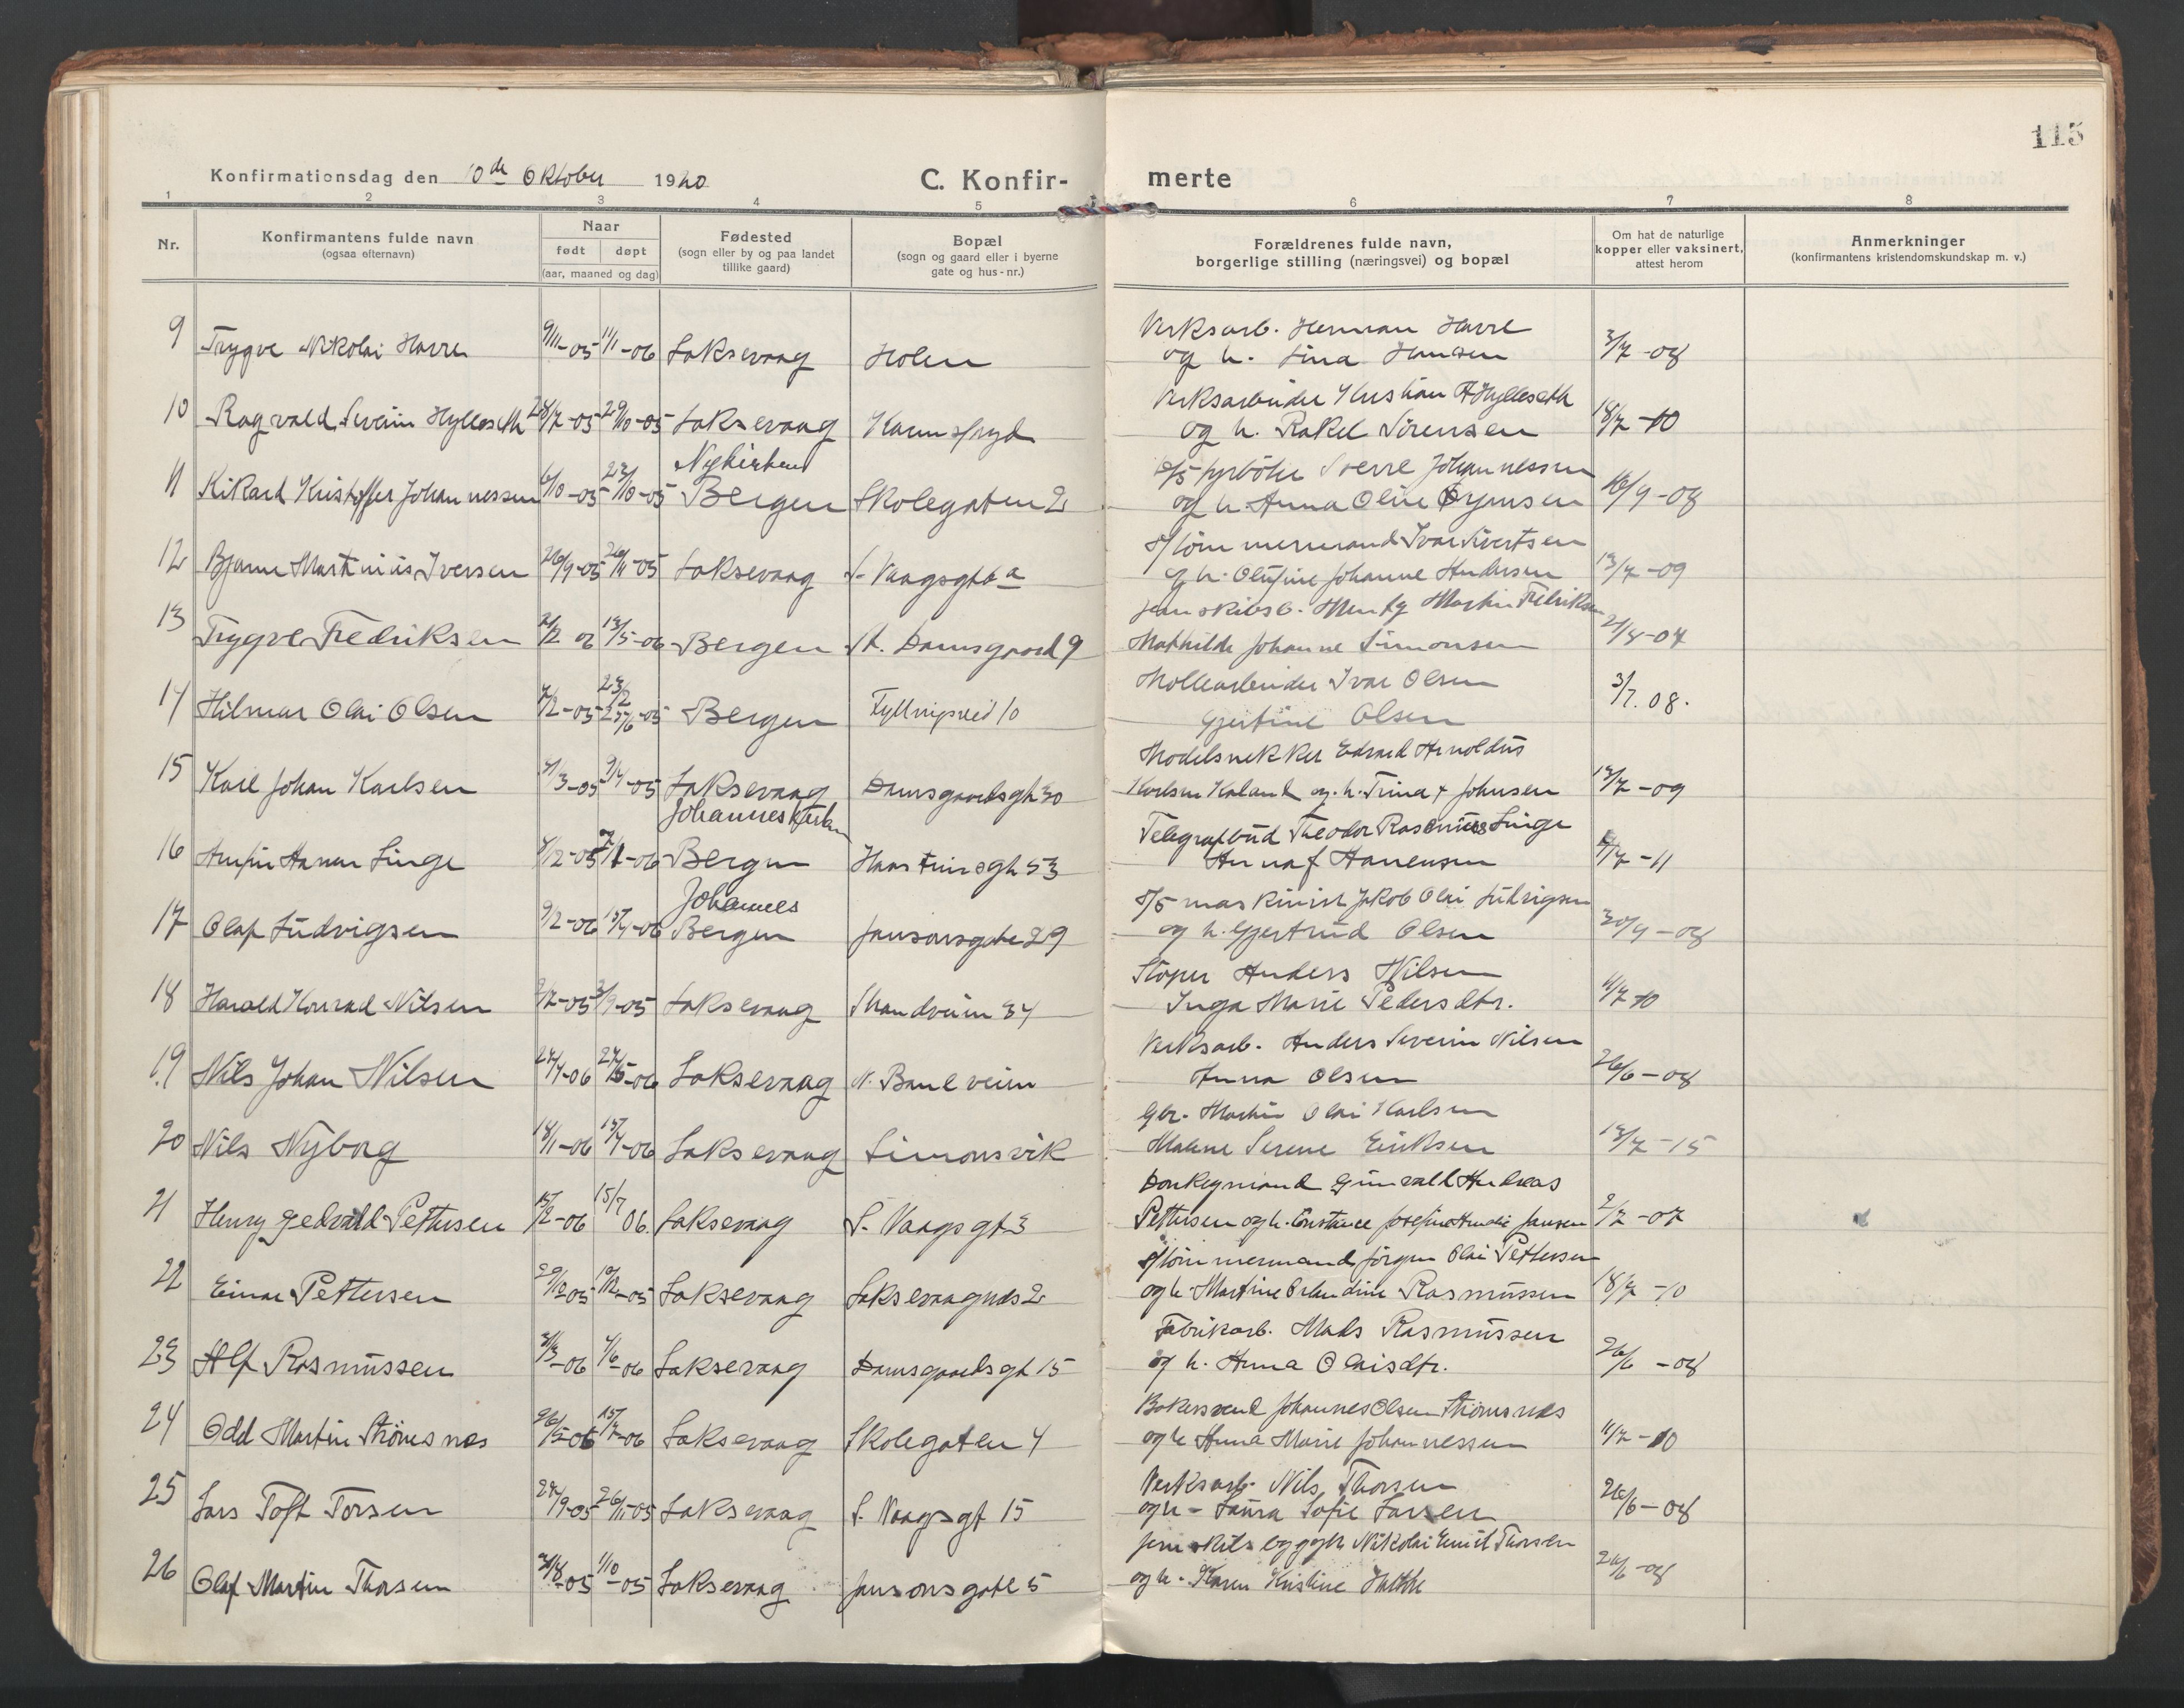 115
Konfirmationsdag den 10de Oktober 1920
C. Konfir- merte
1 2 3 4 5 6 7 8
Nr.
Konfirmantens fulde navn
(ogsaa efternavn)
Naar
født døpt
(aar, maaned og dag)
Fødested
(sogn eller by og paa landet
tillike gaard)
Bopæl
(sogn og gaard eller i byerne
gate og hus-nr.)
Forældrenes fulde navn,
borgerlige stilling (næringsvei) og bopæl
Om hat de naturlige
kopper eller vaksinert,
attest herom
Anmerkninger
(konfirmantens kristendomskundskap m. v.)
Verksarb. Herman Havre
9 Trygve Nikolai Havre 9/11-05 1/1-06 Laksevaag Holen og h. Lina Hansen 3/7-08
Verksarbeider Kristian Hylleseth
10 Ragvald Severin Hylleseth 28/7-05 29/10-05 Laksevaag og h. Rakel Sørensen 18/7-10
Nykirken D/S fyrböter Sverre Johannessen
11 Rikard Kristoffer Johannessen 6/10-05 23/10-05 Bergen Skolegaten 2 og h. Anna Oline 16/9-08
Tömmermand Ivar Sivertsen
12 Bjarne Martinius Iversen 26/9-05 26/11-05 Laksevaag S. Vaagsgt 6a og h. Olufine Johanne Andersen 13/7-09
Jernskibsb. Martin Fredriksen
13 Trygve Fredriksen 2/2 06 13/5-06 Bergen St. Damsgaard 9 Mathilde Johanne Simonsen 21/8-07
Möllearbeider Ivar Olsen
14 Hilmar Olai Olsen 7/2-05 25/6-05 Bergen Fyllingsvei 10 Gjertine Olsen 3/7. 08.
Modelsnekker Edvard Arnoldus
15 Karl Johan Karlsen 9/4-05 Laksevaag Damsgaardsgt 30 Karlsen Kaland og h. Trina Johnsen 13/7-09
Johanneskirken Telegrafbud Theodor Rasmus Linge
16 Linge Bergen 53 Anna Hansensen 7/7-11
Johannes D/S maskinist Jakob Olai Ludvigsen
17 Olaf Ludvigsen 9/2-06 15/4-06 Bergen Jansonsgate 29 og h. Gjertrud Olsen 30/9-08
Stöper Anders Nilsen
18 Harald Konrad Nilsen 3/9-05 Laksevaag Strandveien 34 Inga Marie Pedersdtr. 11/7-10
Verksarb. Anders Severin Nilsen
19 Nils Johan Nilsen 27/4-06 Laksevaag Anna Olsen 26/6-08
Gbr. Martin Olai Karlsen
20 Nils Nyborg 18/1-06 15/4-06 Laksevaag Simonsvik Malene Serene Eriksen 13/7-15
Donkeymand Gunvald Andreas
21 Henry Gedvald Pettersen 15/2-06 15/7 06. Laksevaag S. Vaagsgt 3 Pettersen og h. Constance Josefine Jansen 2/7-07
Tömmermand Jörgen Olai Pettersen
22 Einar Pettersen 29/10-05 10/12-05 Laksevaag Laksevaagnes 2 og h. Martine Orlandine Rasmussen 18/7-10
Fabrikarb. Mads Rasmussen
23 Alf Rasmussen 4/6-06 Laksevaag Damsgaardsgt 15 og h. Anna Olaisdtr. 26/6-08
Bakersvend Johannes Olsen Strömsnes
24 Odd Martin Strömsnes 26/5-06 15/7-06 Laksevaag Skolegaten 4 og h Anna Marie Johannessen 11/7-10
Verksarb. Nils Thorsen
25 Lars Toft Torsen 27/9-05 26/11-05 Laksevaag S. Vaagsgt 15 og h- Laura Sofie Larsen 26/6-08
Jernskibsbygger Nikolai Emil Thorsen
26 Olaf Martin Thorsen 1/10-05 Laksevaag Jansonsgate 5 og h. Karen Kristine 26/6-08